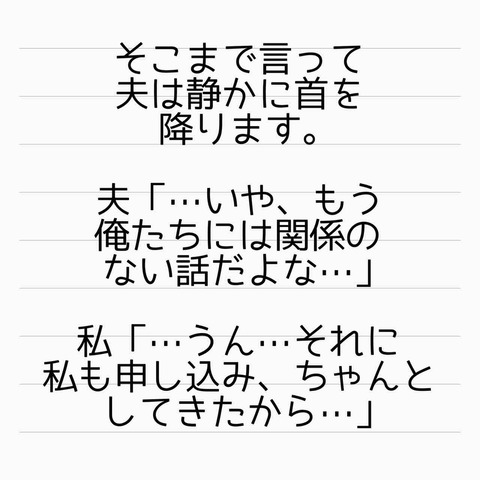 そこまで言って
夫は静かに首を
降ります。
夫「…いや、もう
俺たちには関係の
ない話だよな…」
私「…うん…それに
私も申し込み、ちゃんと
してきたから…」